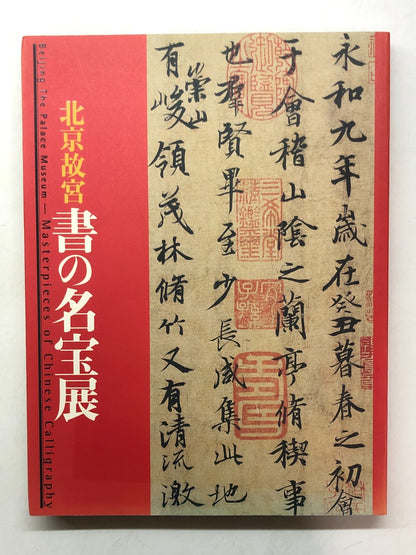 北京故宮
書の名宝展
Beijing The Palace Museum — Masterpieces of Chinese Calligraphy
永和九年歳在癸丑暮春之初會
于會稽山陰之蘭亭脩稧事
也羣賢畢至少長咸集此地
有崇山峻領茂林脩竹又有清流激